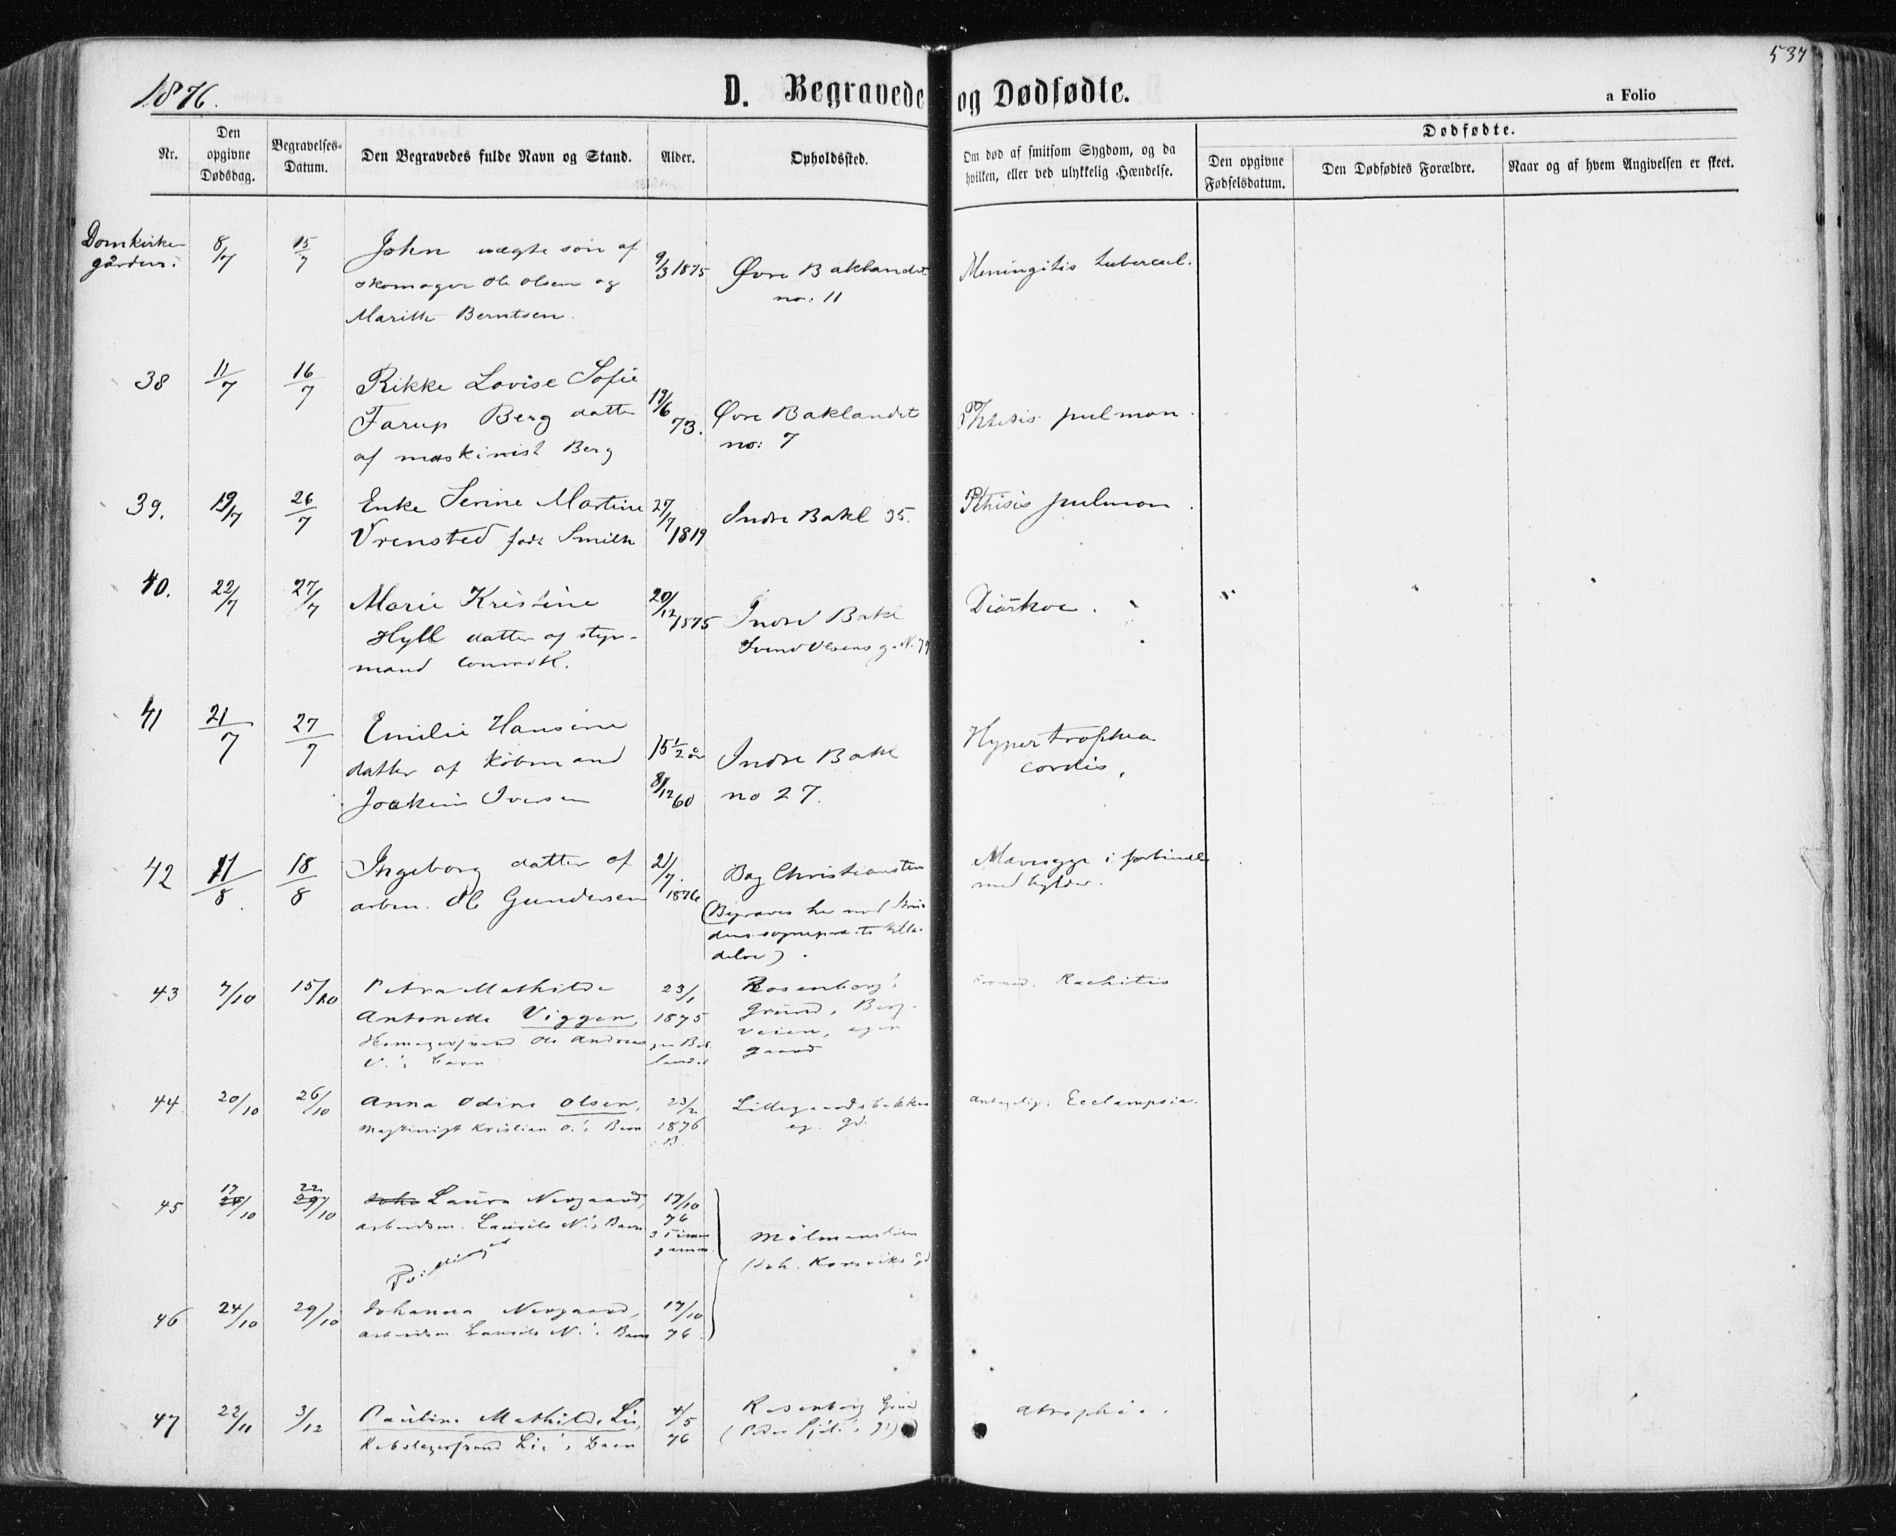 537
1876.
D. Begravede og Dødfødte.
a Folio
Nr.
Den opgivne Dødsdag.
Begravelses-Datum.
Den Begravedes fulde Navn og Stand.
Alder.
Opholdssted.
Om død af smitsom Sygdom, og da hvilken, eller ved ulykkelig Hændelse.
Dødfødte.
Den opgivne Fødselsdatum.
Den Dødfødtes Forældre.
Naar og af hvem Angivelsen er skeet.
Domkirke- 8/7 15/7 John uægte søn af 9/3 1875 Øvre Baklandet Meningitis tubercul.
gården. skomager Ole Olsen og no: 11
Marith Berntsen.
38 11/7 16/7 Rikke Lovise Sofie
Farup Berg datter 17/6 73. Øvre Baklandet Phtisis pulmon.
af maskinist Berg no: 7
39. 19/7 26/7 Enke Serine Martine 27/7 1819 Indre Bakl 35. Pthisis pulmon.
Vrensted født Smith
40. 22/7 27/7 Marie Kristine 20/12 1875 Indre Bakl Diarkoe.
Hyll datter af styr-
mand
41 21/7 27/7 Emilie Hansine Hypertrophia
datter af Købmand 15 1/2 år Indre Bakl cordis,
Joakim Iversen 8/12 60 no 27.
42 11/8 18/8 Ingeborg datter af 21/7 1876 Bag Christiansten
arbm. Ole Gundersen
med
43 7/10 15/10 Petra Mathilde 23/1 Rosenborg Rachitis
Antonette Viggen, 1875 Grund, Berg-
Ole Andreas veien, egen
V.'s Barn gaard
44 20/10 26/10 Anna Odine Olsen, 23/2 Lillegaardsbakken Antagelig: Ecclampsia.
Maskinist Kristian O.'s Barn 1876 eg. gd.
B.
45 17/10 22/10 Laura Nergaard, 17/10
arbeidsm. Laurits N.'s Barn 76
3 Timer gamm.
46 24/10 29/10 Johanna Nergaard, 17/10
arbeidsm Laurits N.'s Barn 76
47 22/11 3/12 Pauline Mathilde Lie, 4/5 Rosenborg Grund atrophia.
Lie's Barn 76